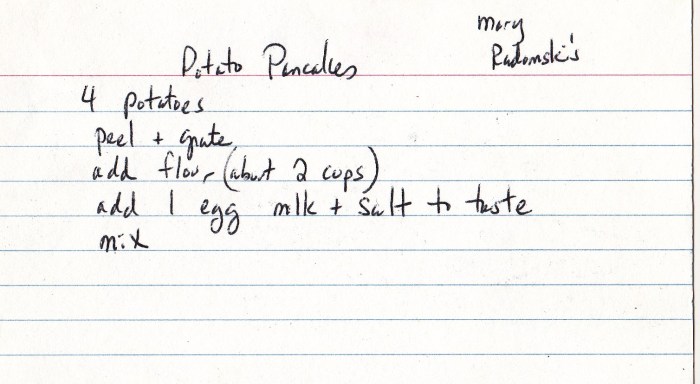 Mary
Radomski's
Potato Pancakes
4 potatoes
peel + grate
add flour (about 2 cups)
add 1 egg milk + salt to taste
mix